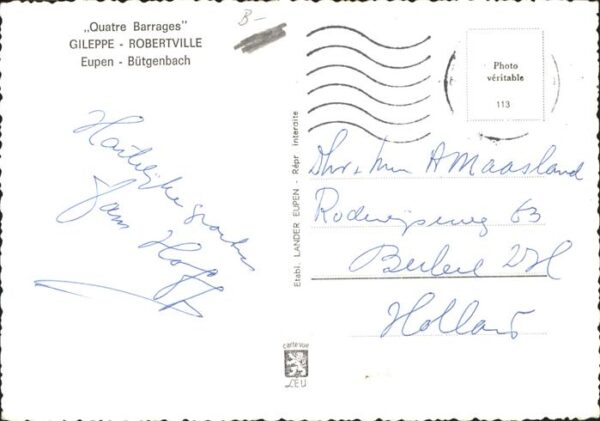 „Quatre Barrages"
GILEPPE - ROBERTVILLE
Eupen - Bütgenbach
B-
Photo
véritable
113
Hartelijke groeten
Jan Hoff
Etabl. LANDER EUPEN - Répr. interdite
Dhr. + Mw A Maasland
63
Holland
carte vue
LEU